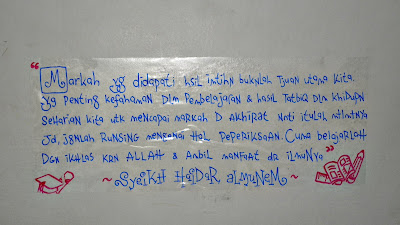 "Markah yg didapati hsil imtihn buknlah Tjuan utama kita.
yg penting kefahaman Dlm Pembelajaran & hasil Tatbiq Dlm khidupn
seharian kita utk mencapai markah D akhirat nnti itulah mtlmtnya
Jd, jgnlah RunSing mengenai HaL PePeRiKSaan. Cuma belajarlah
DGn ikhlas KRn ALLAH & Ambil manFaat dr ilmuNya"
~ SyeiKH HaiDaR aLMuNeM ~